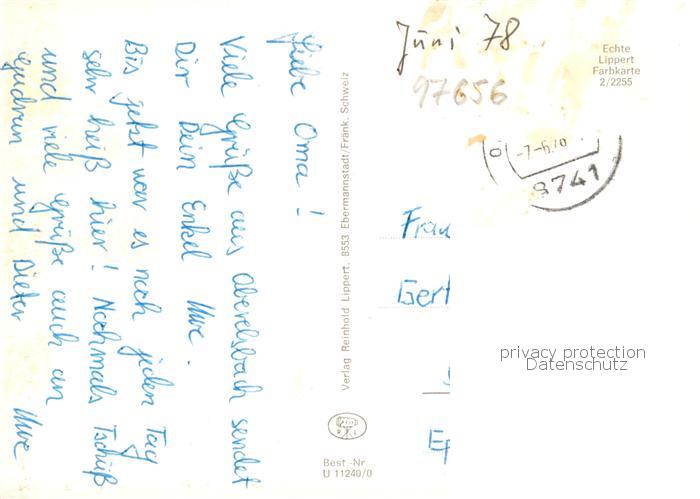 Liebe Oma!
Viele Grüße aus Oberelsbach sendet
Dir Dein Enkel Uwe.
Bis jetzt war es noch jeden Tag
sehr heiß hier! Nochmals Tschüß
und viele Grüße auch an
Gudrun und Dieter Uwe
Verlag Reinhold Lippert, 8553 Ebermannstadt/Fränk. Schweiz
Juni 78
97656
Echte
Lippert
Farbkarte
2/2255
8741
Frau
Gert
privacy protection
Datenschutz
Best.-Nr.
U 11240/0